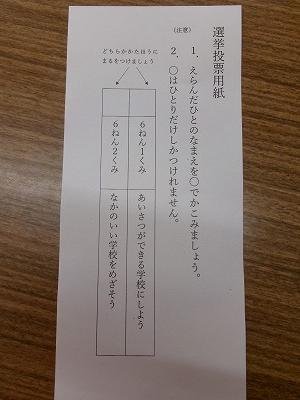 選挙投票用紙
（注意）
１．えらんだひとのなまえを〇でかこみましょう。
２．〇はひとりだけしかつけれません。
どちらかかたほうに
まるをつけましょう
６ねん１くみ　あいさつができる学校にしよう
６ねん２くみ　なかのいい学校をめざそう